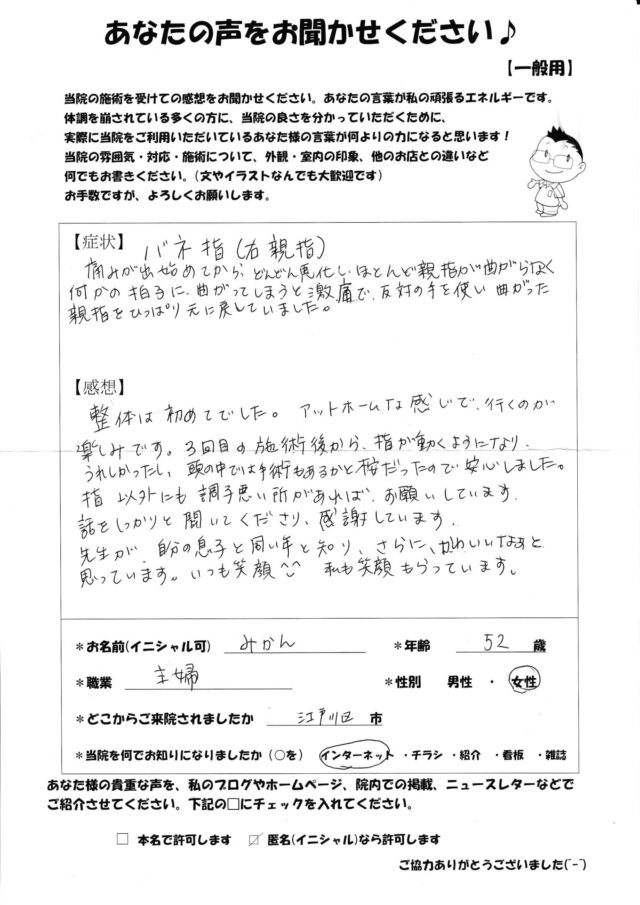 あなたの声をお聞かせください♪
【一般用】
当院の施術を受けての感想をお聞かせください。あなたの言葉が私の頑張るエネルギーです。
体調を崩されている多くの方に、当院の良さを分かっていただくために、
実際に当院をご利用いただいているあなた様の言葉が何よりの力になると思います！
当院の雰囲気・対応・施術について、外観・室内の印象、他のお店との違いなど
何でもお書きください。（文やイラストなんでも大歓迎です）
お手数ですが、よろしくお願いします。
【症状】 バネ指（右親指）
痛みが出始めてから、どんどん悪化し、ほとんど親指が曲がらなく
何かの拍子に、曲がってしまうと激痛で、反対の手を使い曲がった
親指をひっぱり元に戻していました。
【感想】
整体は初めてでした。アットホームな感じで、行くのが
楽しみです。3回目の施術後から、指が動くようになり、
うれしかったし、頭の中では手術もあるかと だったので安心しました。
指以外にも調子悪い所があれば、お願いしています。
話をしっかりと聞いてくださり、感謝しています。
先生が、自分の息子と同い年と知り、さらに、かわいいなぁと
思っています。いつも笑顔^^ 私も笑顔もらっています。
*お名前（イニシャル可） みかん *年齢 52 歳
*職業 主婦 *性別 男性 ・ 女性
*どこからご来院されましたか 江戸川区 市
*当院を何でお知りになりましたか（○を） インターネット ・チラシ ・紹介 ・看板 ・雑誌
あなた様の貴重な声を、私のブログやホームページ、院内での掲載、ニュースレターなどで
ご紹介させてください。下記の□にチェックを入れてください。
□ 本名で許可します ☑ 匿名（イニシャル）なら許可します
ご協力ありがとうございました(^-^)